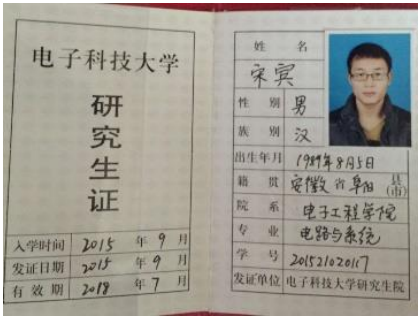 电子科技大学
研究生证
入学时间 2015 年 9 月
发证日期 2015 年 9 月
有效期 2018 年 7 月
姓名
宋宾
性别 男
族别 汉
出生年月 1989年8月5日
籍贯 安徽 省 阜阳 县(市)
院系 电子工程学院
专业 电路与系统
学号 201521020117
发证单位 电子科技大学研究生院